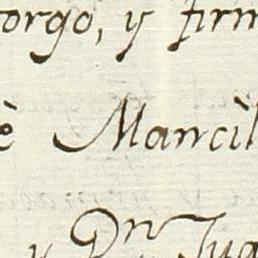 orgo, y firm
è Mancil
y Dn Jua